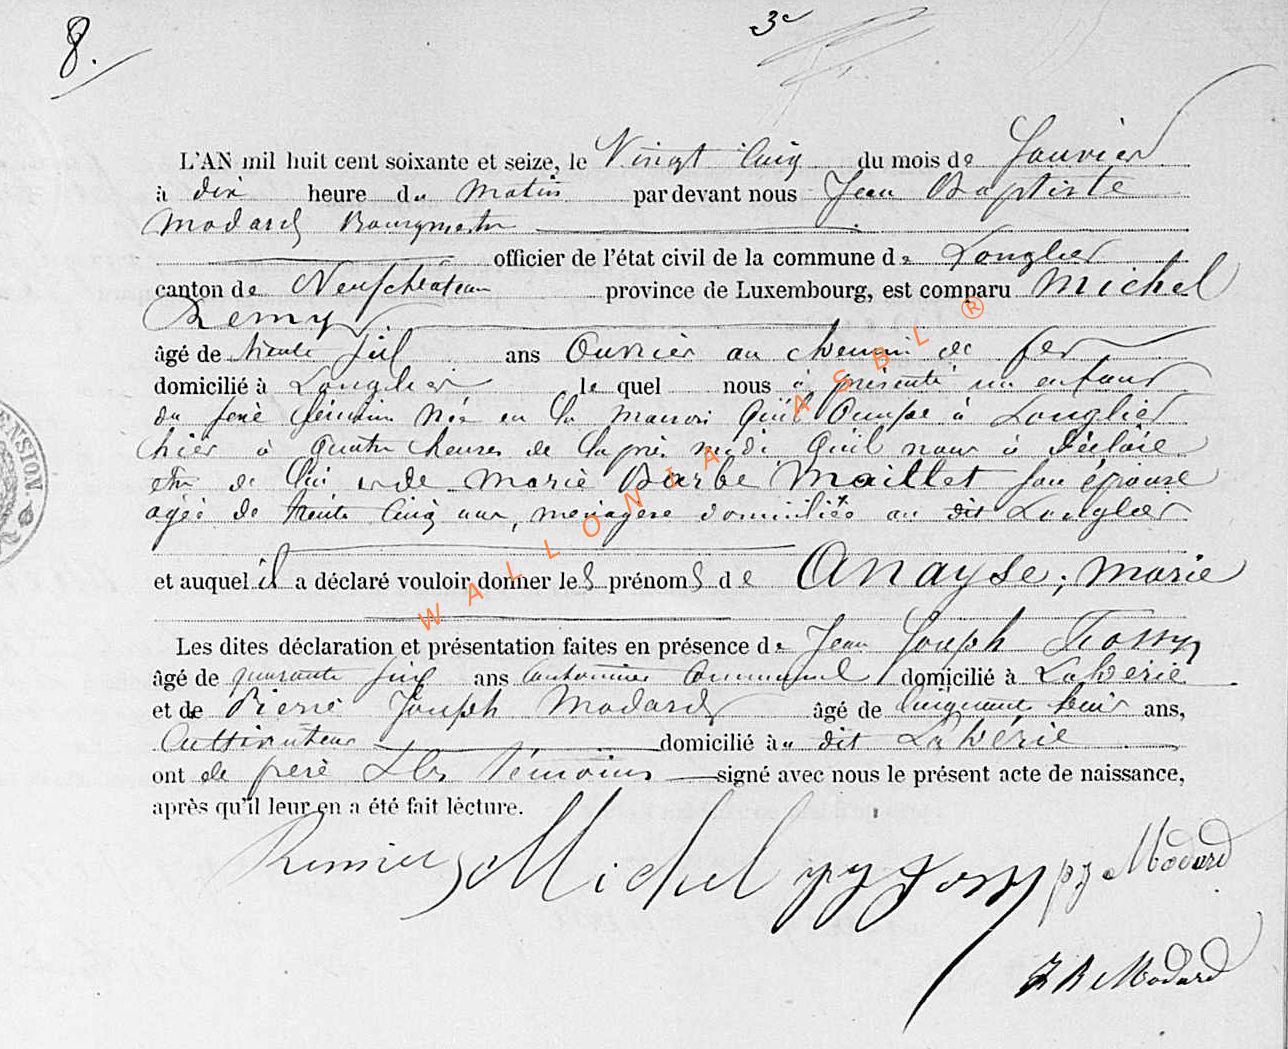 8.
3e
L'AN mil huit cent soixante et seize, le Vingt Cinq du mois de Janvier
à dix heure du Matin par devant nous Jean Baptiste
Modard Bourgmestre
officier de l'état civil de la commune de Longlier
canton de Neufchâteau province de Luxembourg, est comparu Michel
Remy
âgé de trente six ans Ouvrier au chemin de fer
domicilié à Longlier le quel nous à présenté un enfant
du sexe féminin Née en la maison qu'il occupe à Longlier
hier à quatre heures de l'après midi qu'il nous à déclaré
être de lui et de Marie Barbe Maillet son épouse
agée de trente cinq ans, ménagère domiciliée au dit Longlier
et auquel il a déclaré vouloir donner les prénoms de Anayse, Marie
Les dites déclaration et présentation faites en présence de Jean Joseph Fossy
âgé de quarante six ans Cantonnier Communal domicilié à Lahérie
et de Pierre Joseph Modard âgé de cinquante ans,
Cultivateur domicilié au dit Lahérie
ont le père & les témoins signé avec nous le présent acte de naissance,
après qu'il leur en a été fait lecture.
Remier Michel JJ Fossy PJ Modard
J B Modard
ENSION.
WALLONIA ASBL ®